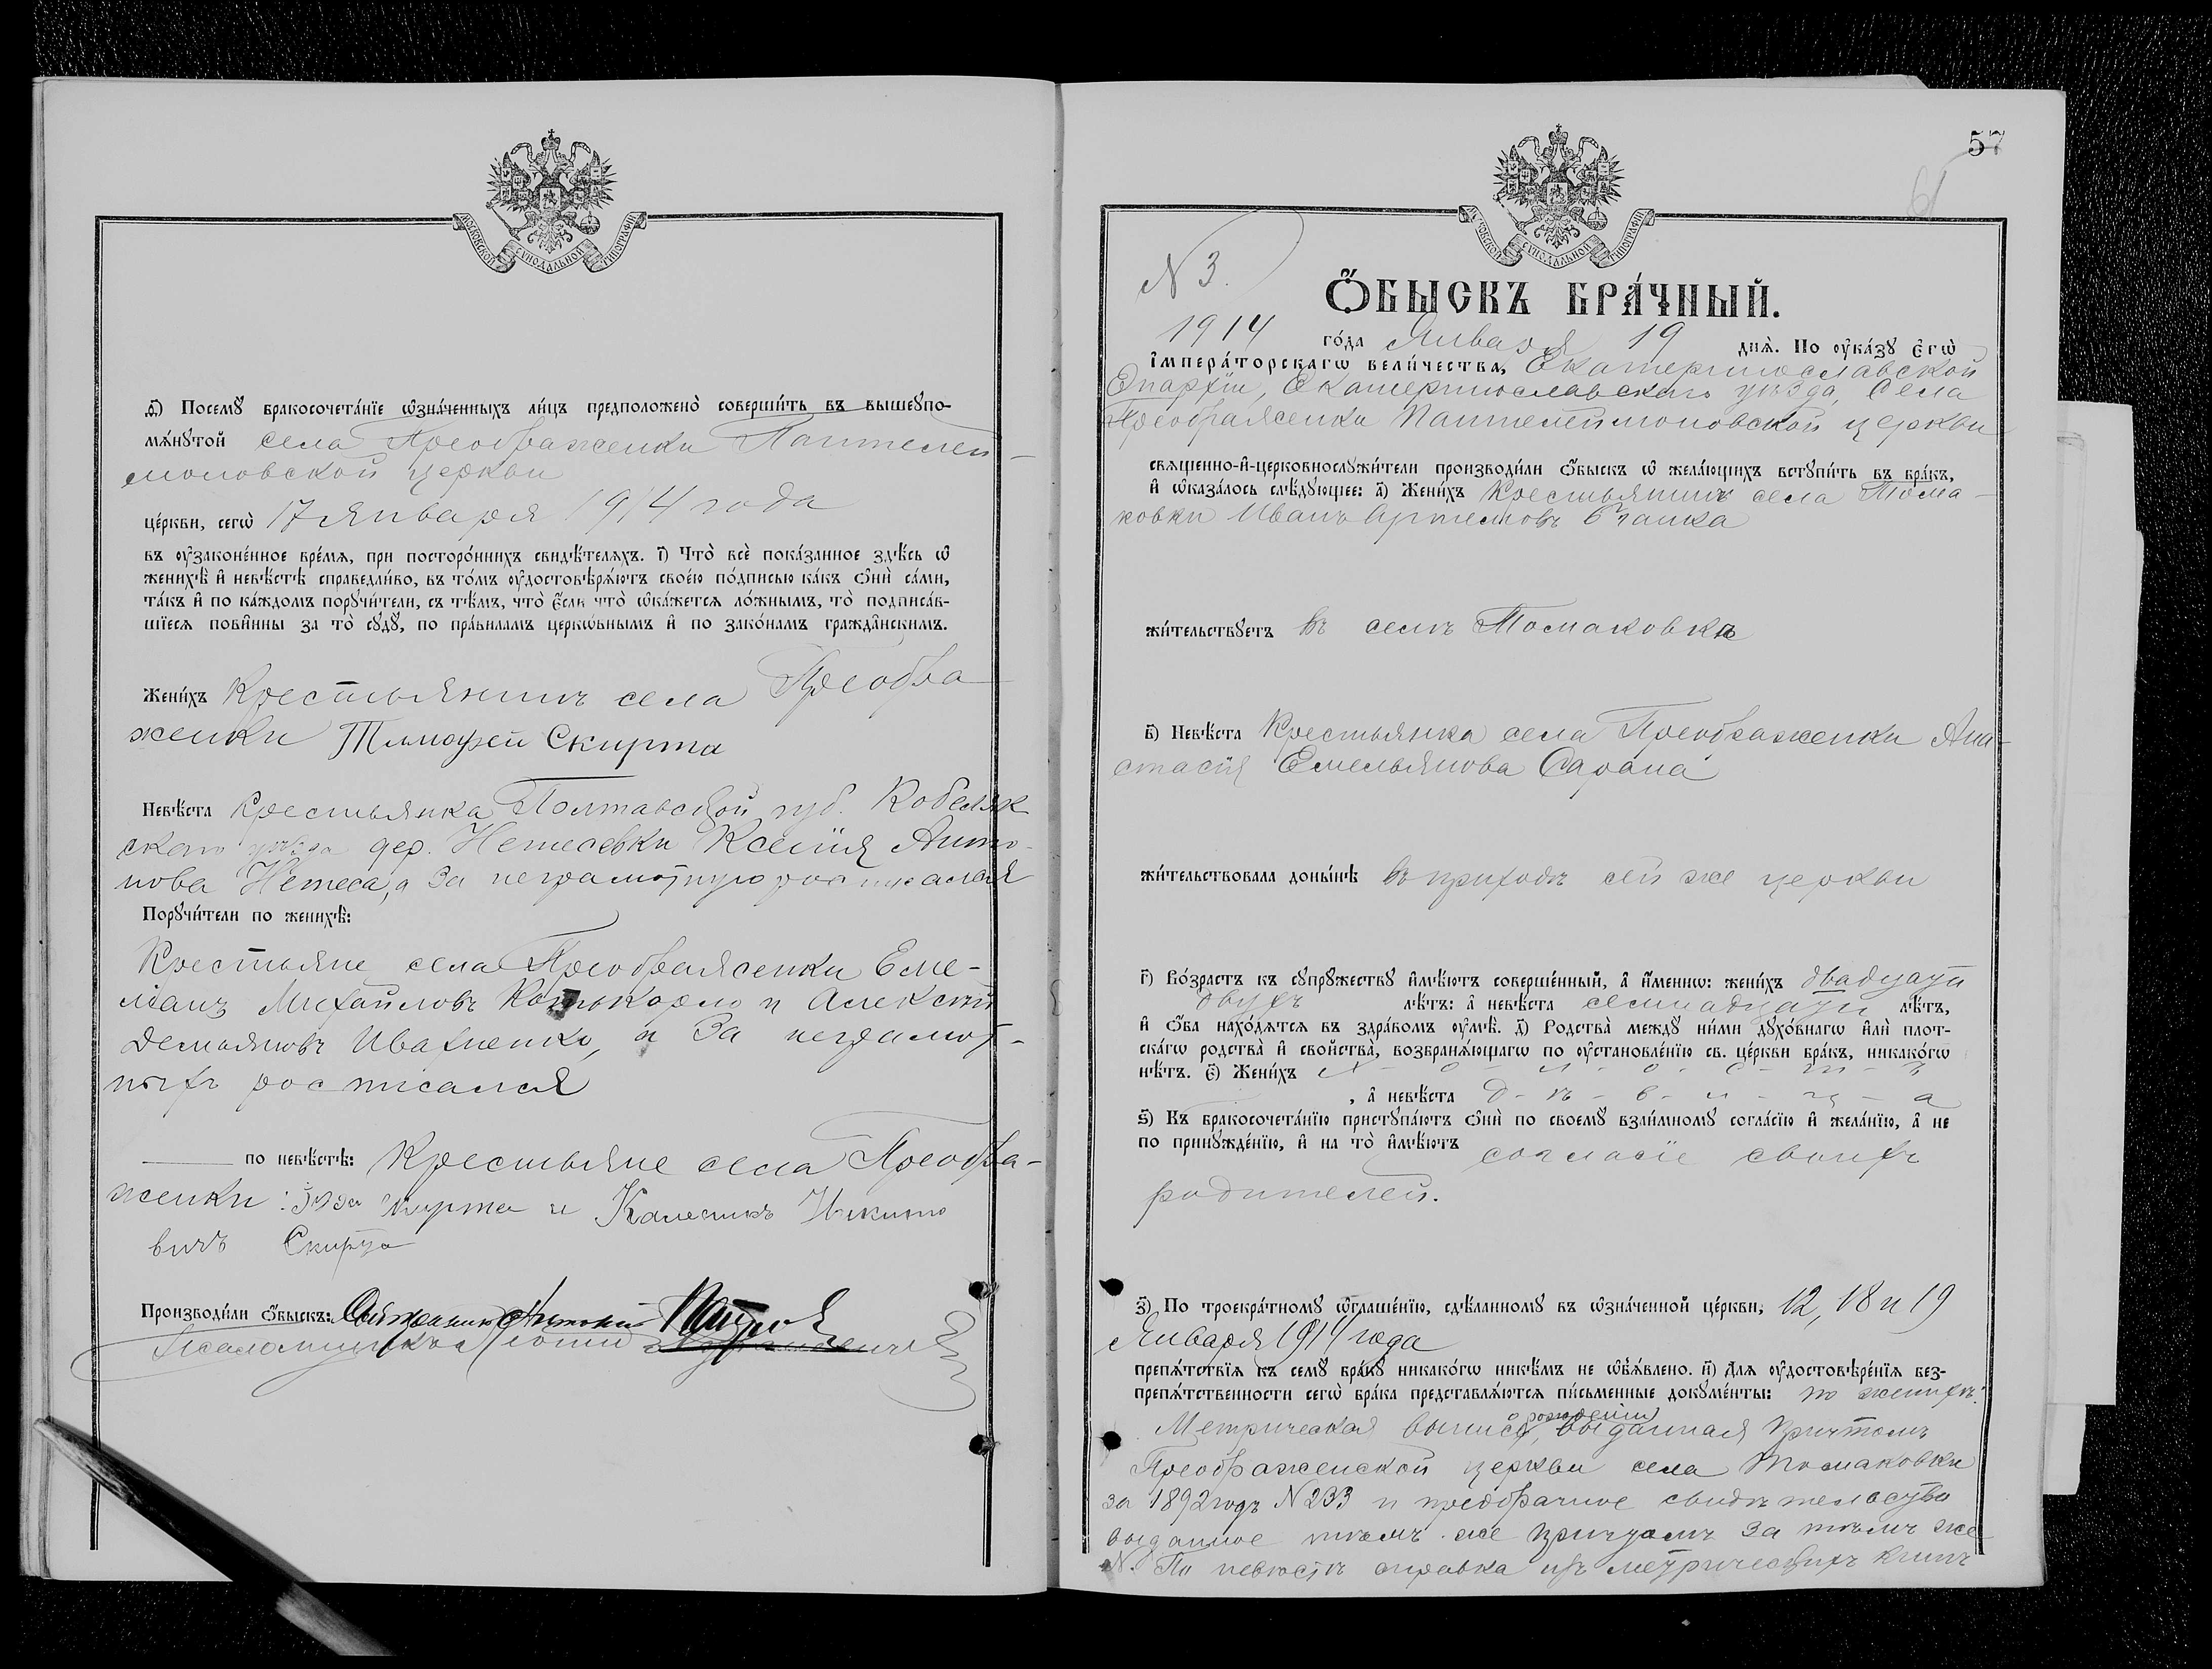 МОСКОВСКОЙ СѴНОДАЛЬНОЙ ТИПОГРАФІИ
ѳ҃) Посемꙋ̀ бракосочета́нїе ѡ҆зна́ченныхъ ли́цъ предположено̀ соверши́ть въ вышеꙋпо-
мѧ́нꙋтой села Преображенки Пантелей-
моновской церкви
це́ркви, сегѡ̀ 17 Января 1914 года
въ ᲂу҆законе́нное вре́мѧ, при посторо́ннихъ свидѣ́телѧхъ. і҃) Что̀ всѐ пока́занное здѣ́сь ѡ҆
женихѣ̀ и҆ невѣ́стѣ справедли́во, въ то́мъ ᲂу҆достовѣрѧ́ютъ свое́ю по́дписью ка́къ ѻ҆нѝ са́ми,
та́къ и҆ по ка́ждомъ порꙋчи́тели, съ тѣ́мъ, что̀ є҆́сли что̀ ѡ҆ка́жетсѧ ло́жнымъ, то̀ подписа́в-
шїесѧ пови́нны за то̀ сꙋдꙋ̀, по пра́виламъ церкѡ́внымъ и҆ по зако́намъ гражда́нскимъ.
Жени́хъ Крестьянинъ села Преобра
женки Тимофей Скирта
Невѣ́ста Крестьянка Полтавской губ. Кобеляк
скаго уѣзда дер. Нетесовки Ксенія Анто-
нова Нетеса, а за неграмотную росписался
Порꙋчи́тели по женихѣ̀:
Крестьяне села Преображенки Еме-
ліанъ Михайловъ и Алексѣй
Демьяновъ Ивахненко, и за неграмот-
ныхъ росписался
по невѣ́стѣ: Крестьяне села Преобра-
женки: и Калестикъ Никито
вичъ Скирта
Производи́ли ѻ҆́быскъ: Священникъ
Псаломщикъ
57
61
МОСКОВСКОЙ СѴНОДАЛЬНОЙ ТИПОГРАФІИ
N 3.
Ѻ҆́БЫСКЪ БРА́ЧНЫЙ.
1914 го́да Января 19 днѧ̀. По ᲂу҆ка́зꙋ є҆гѡ̀
і҆мпера́торскагѡ вели́чества, Екатеринославской
Епархіи, Екатеринославскаго уѣзда, Села
Преображенки Пантелеймоновской церкви
свѧще́нно-и҆-церковнослꙋжи́тели производи́ли ѻ҆́быскъ ѡ҆ жела́ющихъ встꙋпи́ть въ бра́къ,
и҆ ѡ҆каза́лось слѣ́дꙋющее: а҃) Жени́хъ Крестьянинъ села Тома-
ковки Иванъ Артемовъ
жи́тельствꙋетъ въ селѣ Томаковкѣ
в҃) Невѣ́ста Крестьянка села Преображенки Ана-
стасія Емельянова Сарана
жи́тельствовала доны́нѣ въ приходѣ сей же церкви
г҃) Во́зрастъ къ сꙋпрꙋ́жествꙋ и҆мѣ́ютъ соверше́нный, а҆ и҆́менно: жени́хъ двадцати
двухъ лѣ́тъ: а҆ невѣ́ста семнадцати лѣ́тъ,
и҆ ѻ҆́ба нахо́дѧтсѧ въ здра́вомъ ᲂу҆мѣ̀. д҃) Родства̀ междꙋ ни́ми дꙋхо́внагѡ и҆лѝ плот-
ска́гѡ родства̀ и҆ свойства̀, возбранѧ́ющагѡ по ᲂу҆становле́нїю св. це́ркви бра́къ, никако́гѡ
нѣ́тъ. є҃) Жени́хъ х-о-л-о-с-т-ъ
, а҆ невѣ́ста д-ѣ-в-и-ц-а
ѕ҃) Къ бракосочета́нїю пристꙋпа́ютъ ѻ҆нѝ по своемꙋ̀ взаи́мномꙋ согла́сїю и҆ жела́нїю, а҆ не
по принꙋжде́нїю, и҆ на то̀ и҆мѣ́ютъ согласіе своихъ
родителей.
з҃) По троекра́тномꙋ ѡ҆глаше́нїю, сдѣ́ланномꙋ въ ѡ҆зна́ченной це́ркви, 12, 18 и 19
Января 1914 года
препѧ́тствїѧ къ семꙋ̀ бра́кꙋ никако́гѡ никѣ́мъ не ѡ҆б̾ѧ́влено. и҃) Длѧ ᲂу҆достовѣре́нїѧ без-
препѧ́тственности сегѡ̀ бра́ка представлѧ́ютсѧ пи́сьменные докꙋме́нты: по женихѣ:
о рожденіи
Метрическая выпись, выданная причтомъ
Преображенской церкви села Томаковки
за 1892 годъ N 233 и предбрачное свидѣтельство
выданное тѣмъ же причтомъ за тѣмъ же
N. По невѣстѣ справка изъ метрическихъ книгъ